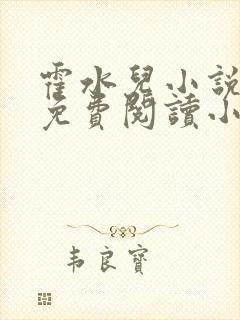 霍水兒小説
免費閱讀小
韦良寶